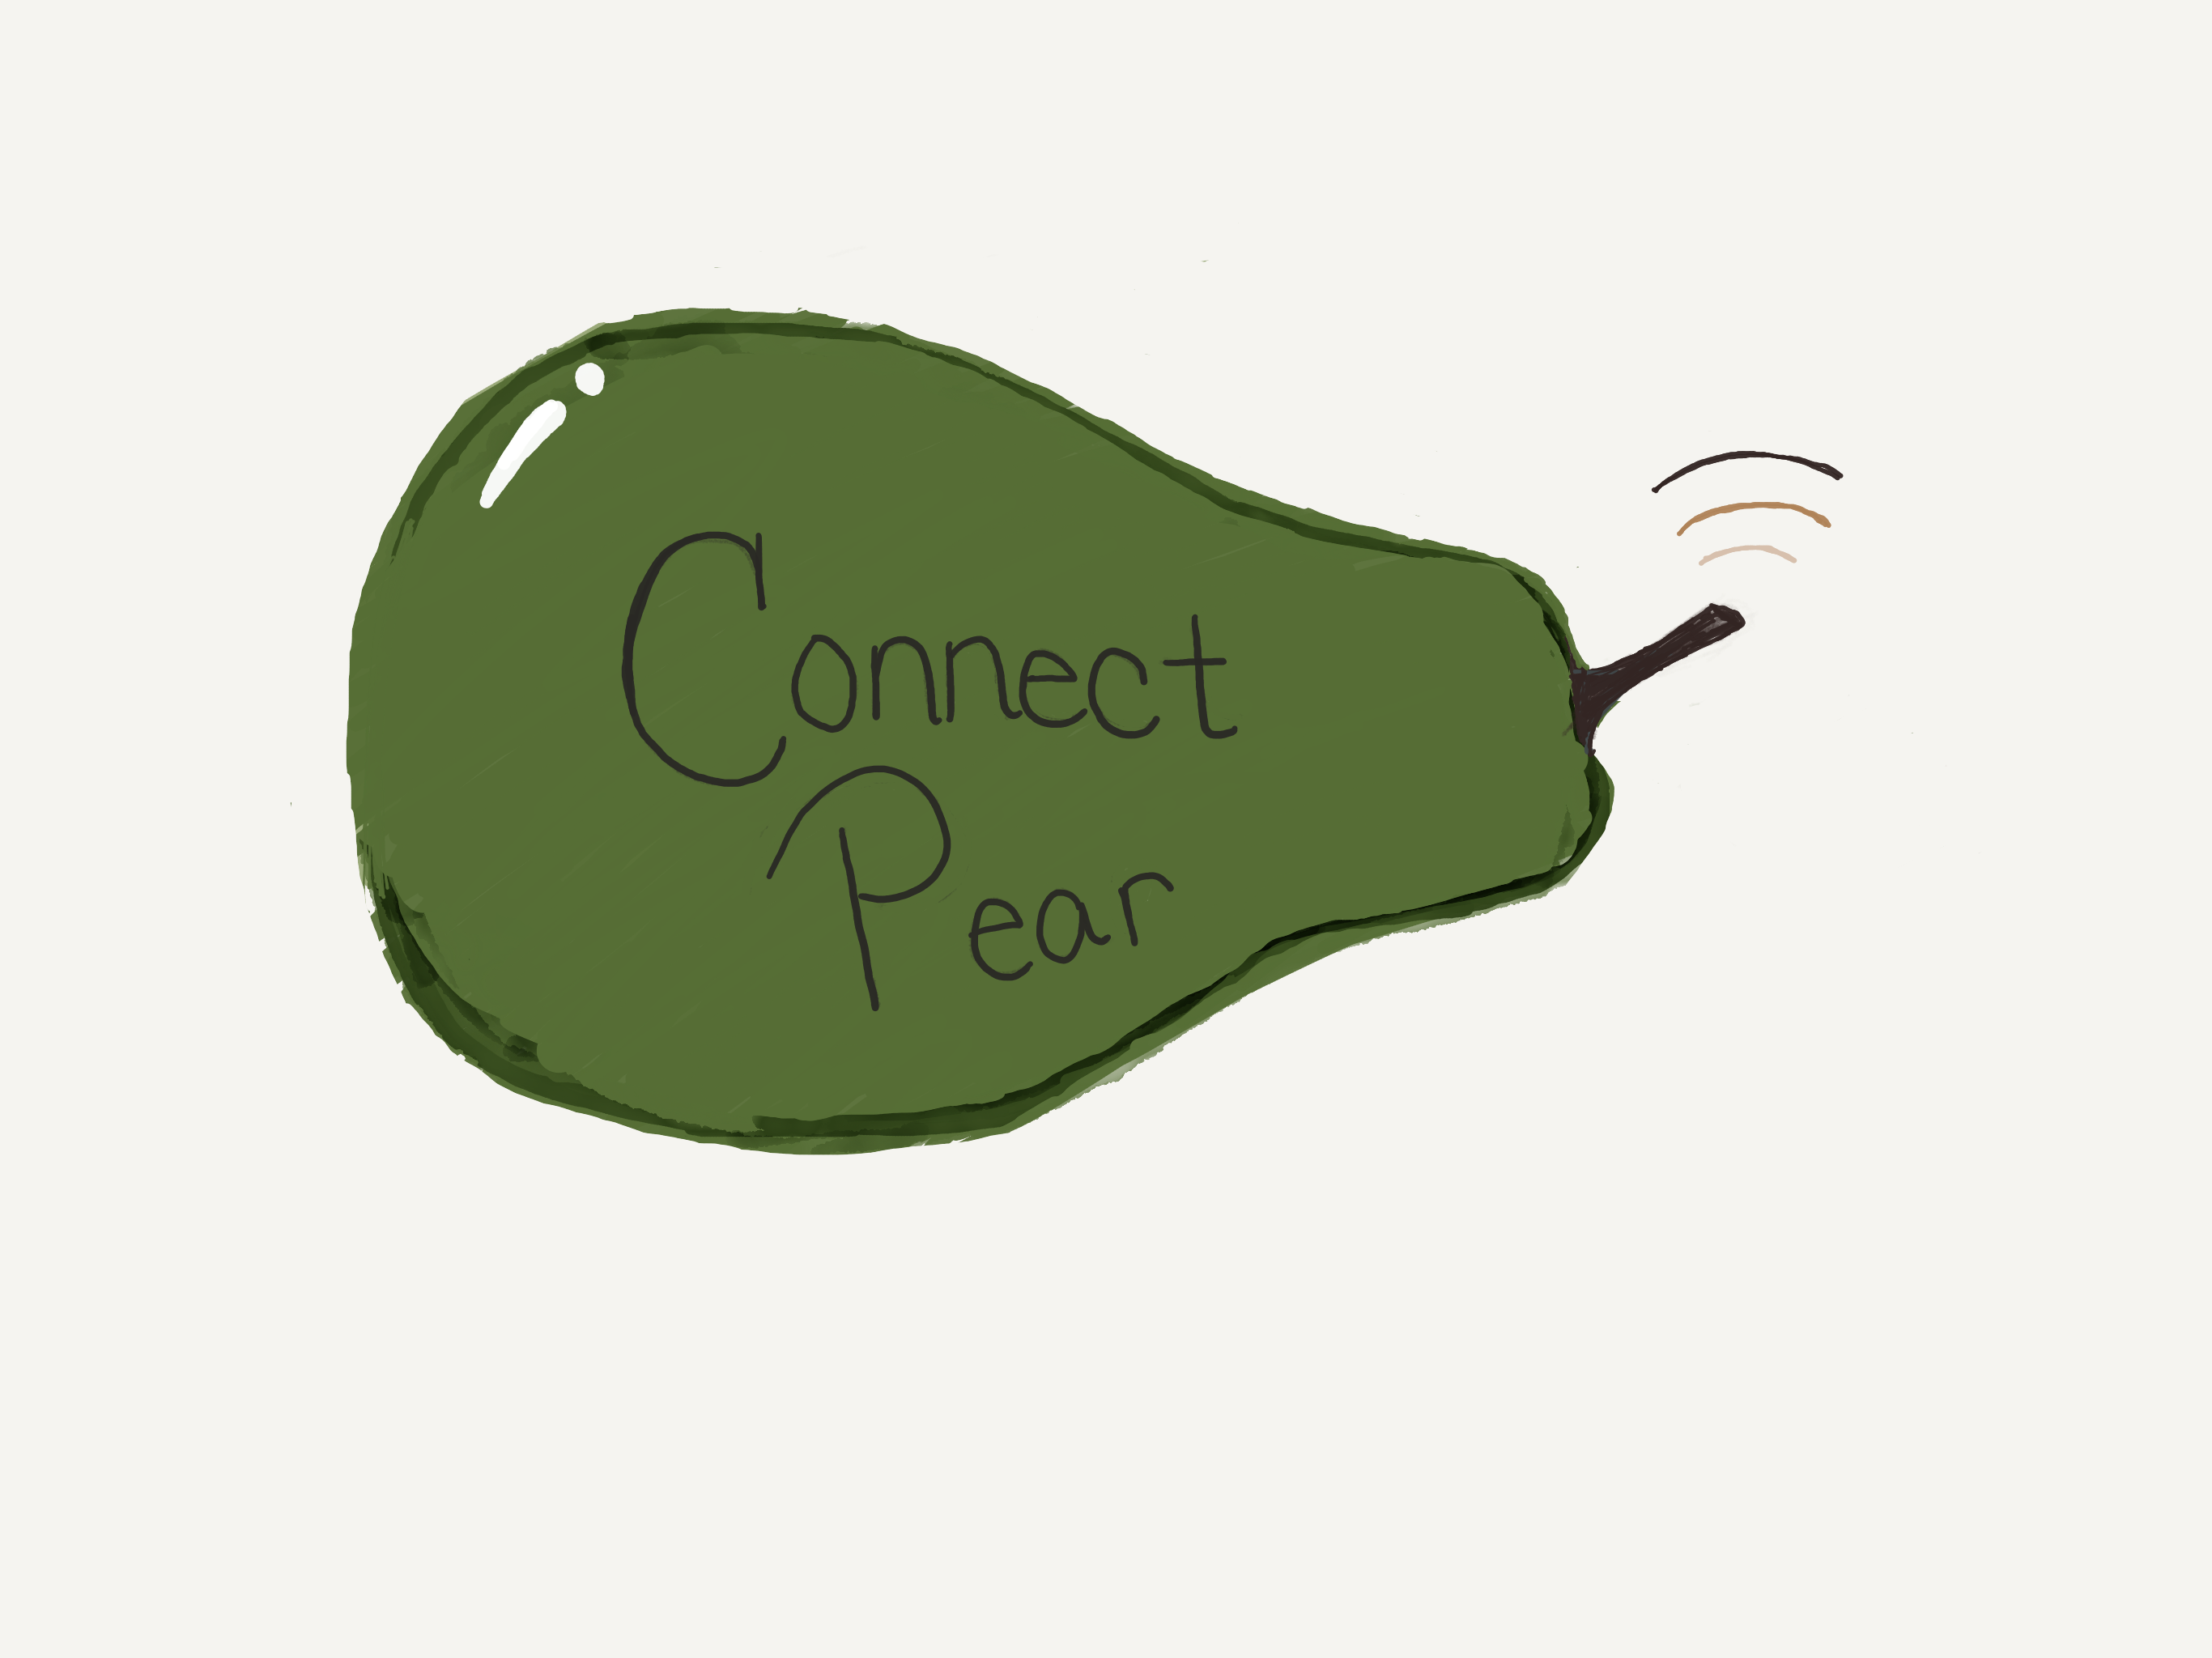 Connect
Pear